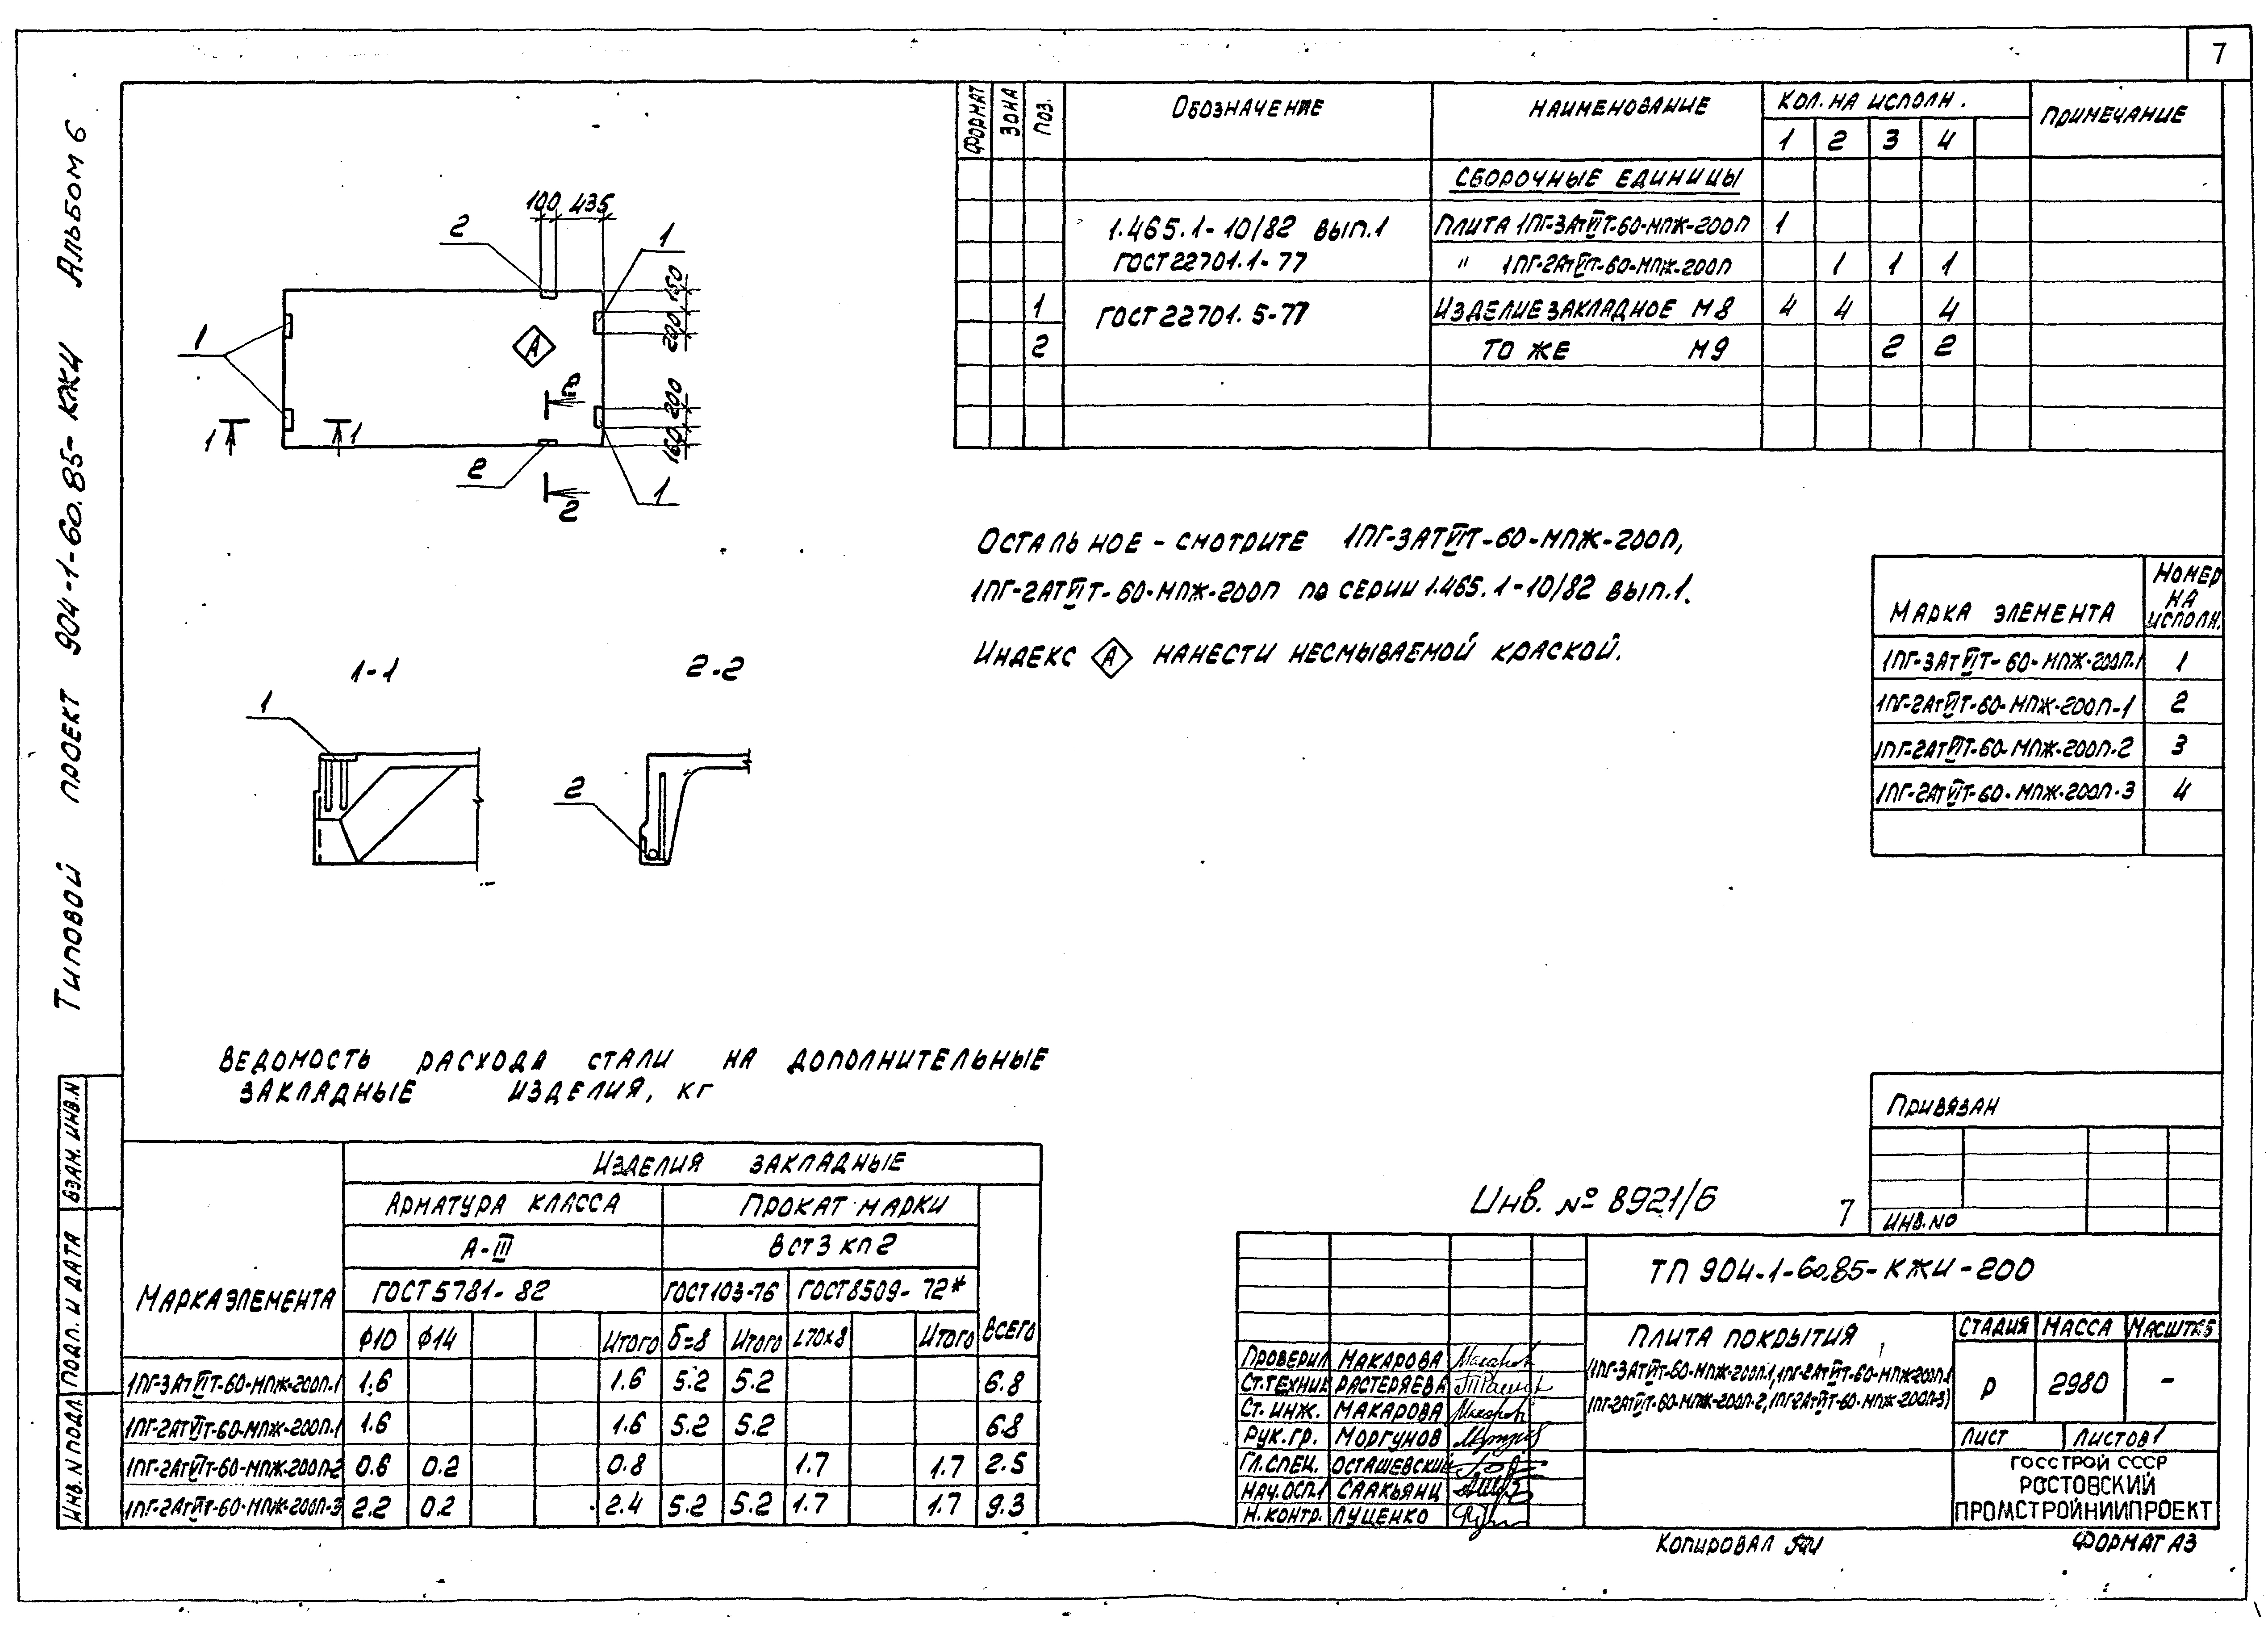 7
Типовой проект 904-1-60.85-КЖИ Альбом 6
Формат
Зона
Поз.
Обозначение
Наименование
Кол. на исполн.
Примечание
1 2 3 4
Сборочные единицы
1.465.1-10/82 вып.1 Плита 1ПГ-3АтVIТ-60-МПЖ-200П 1
ГОСТ 22701.1-77 " 1ПГ-2АтVIТ-60-МПЖ-200П 1 1 1
1 ГОСТ 22701.5-77 Изделие закладное М8 4 4 4
2 То же М9 2 2
100 435
2
1
150
200
А
1
2
200
160
1 1
2
2
1
Остальное - смотрите 1ПГ-3АТVIТ-60-МПЖ-200П,
1ПГ-2АТVIТ-60-МПЖ-200П по серии 1.465.1-10/82 вып.1.
Индекс А нанести несмываемой краской.
Марка элемента
Номер на исполн.
1ПГ-3АтVIТ-60-МПЖ-200П-1 1
1ПГ-2АтVIТ-60-МПЖ-200П-1 2
1ПГ-2АтVIТ-60-МПЖ-200П-2 3
1ПГ-2АтVIТ-60-МПЖ-200П-3 4
1-1
2-2
1
2
Ведомость расхода стали на дополнительные
закладные изделия, кг
Марка элемента
Изделия закладные
Арматура класса Прокат марки
А-III ВСт3кп2
ГОСТ 5781-82 ГОСТ 103-76 ГОСТ 8509-72*
Всего
ϕ10 ϕ14 Итого δ=8 Итого L70x8 Итого
1ПГ-3АтVIТ-60-МПЖ-200П-1 1.6 1.6 5.2 5.2 6.8
1ПГ-2АтVIТ-60-МПЖ-200П-1 1.6 1.6 5.2 5.2 6.8
1ПГ-2АтVIТ-60-МПЖ-200П-2 0.6 0.2 0.8 1.7 1.7 2.5
1ПГ-2АтVIТ-60-МПЖ-200П-3 2.2 0.2 2.4 5.2 5.2 1.7 1.7 9.3
Взам. инв. N
Подп. и дата
Инв. N подл.
Привязан
Инв. No
Инв. № 8921/6 7
ТП 904-1-60.85-КЖИ-200
Плита покрытия
(1ПГ-3АтVIТ-60-МПЖ-200П-1, 1ПГ-2АтVIТ-60-МПЖ-200П-1
1ПГ-2АтVIТ-60-МПЖ-200П-2, 1ПГ-2АтVIТ-60-МПЖ-200П-3)
Стадия Масса Масштаб
Р 2980 -
Лист Листов 1
Госстрой СССР
Ростовский
Промстройниипроект
Проверил Макарова
Ст.техник Растеряева
Ст. инж. Макарова
Рук.гр. Моргунов
Гл.спец. Осташевский
Нач.ОСП-1 Саакьянц
Н.контр. Луценко
Копировал
Формат А3